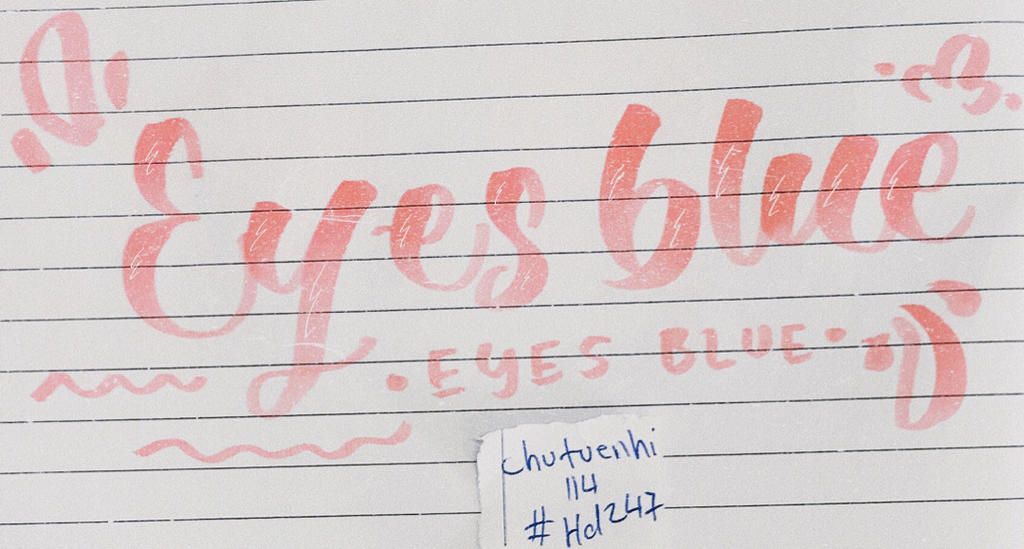 Eyes blue
• EYES BLUE •
chutuenhi
114
#Hd247